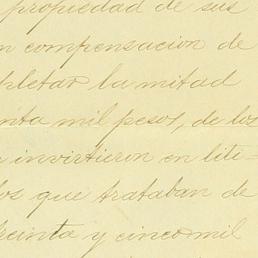 propiedad de sus
n compensacion de
pletar la mitad
enta mil pesos, de los
invirtieron en liti-
los que trataban de
treinta y cinco mil